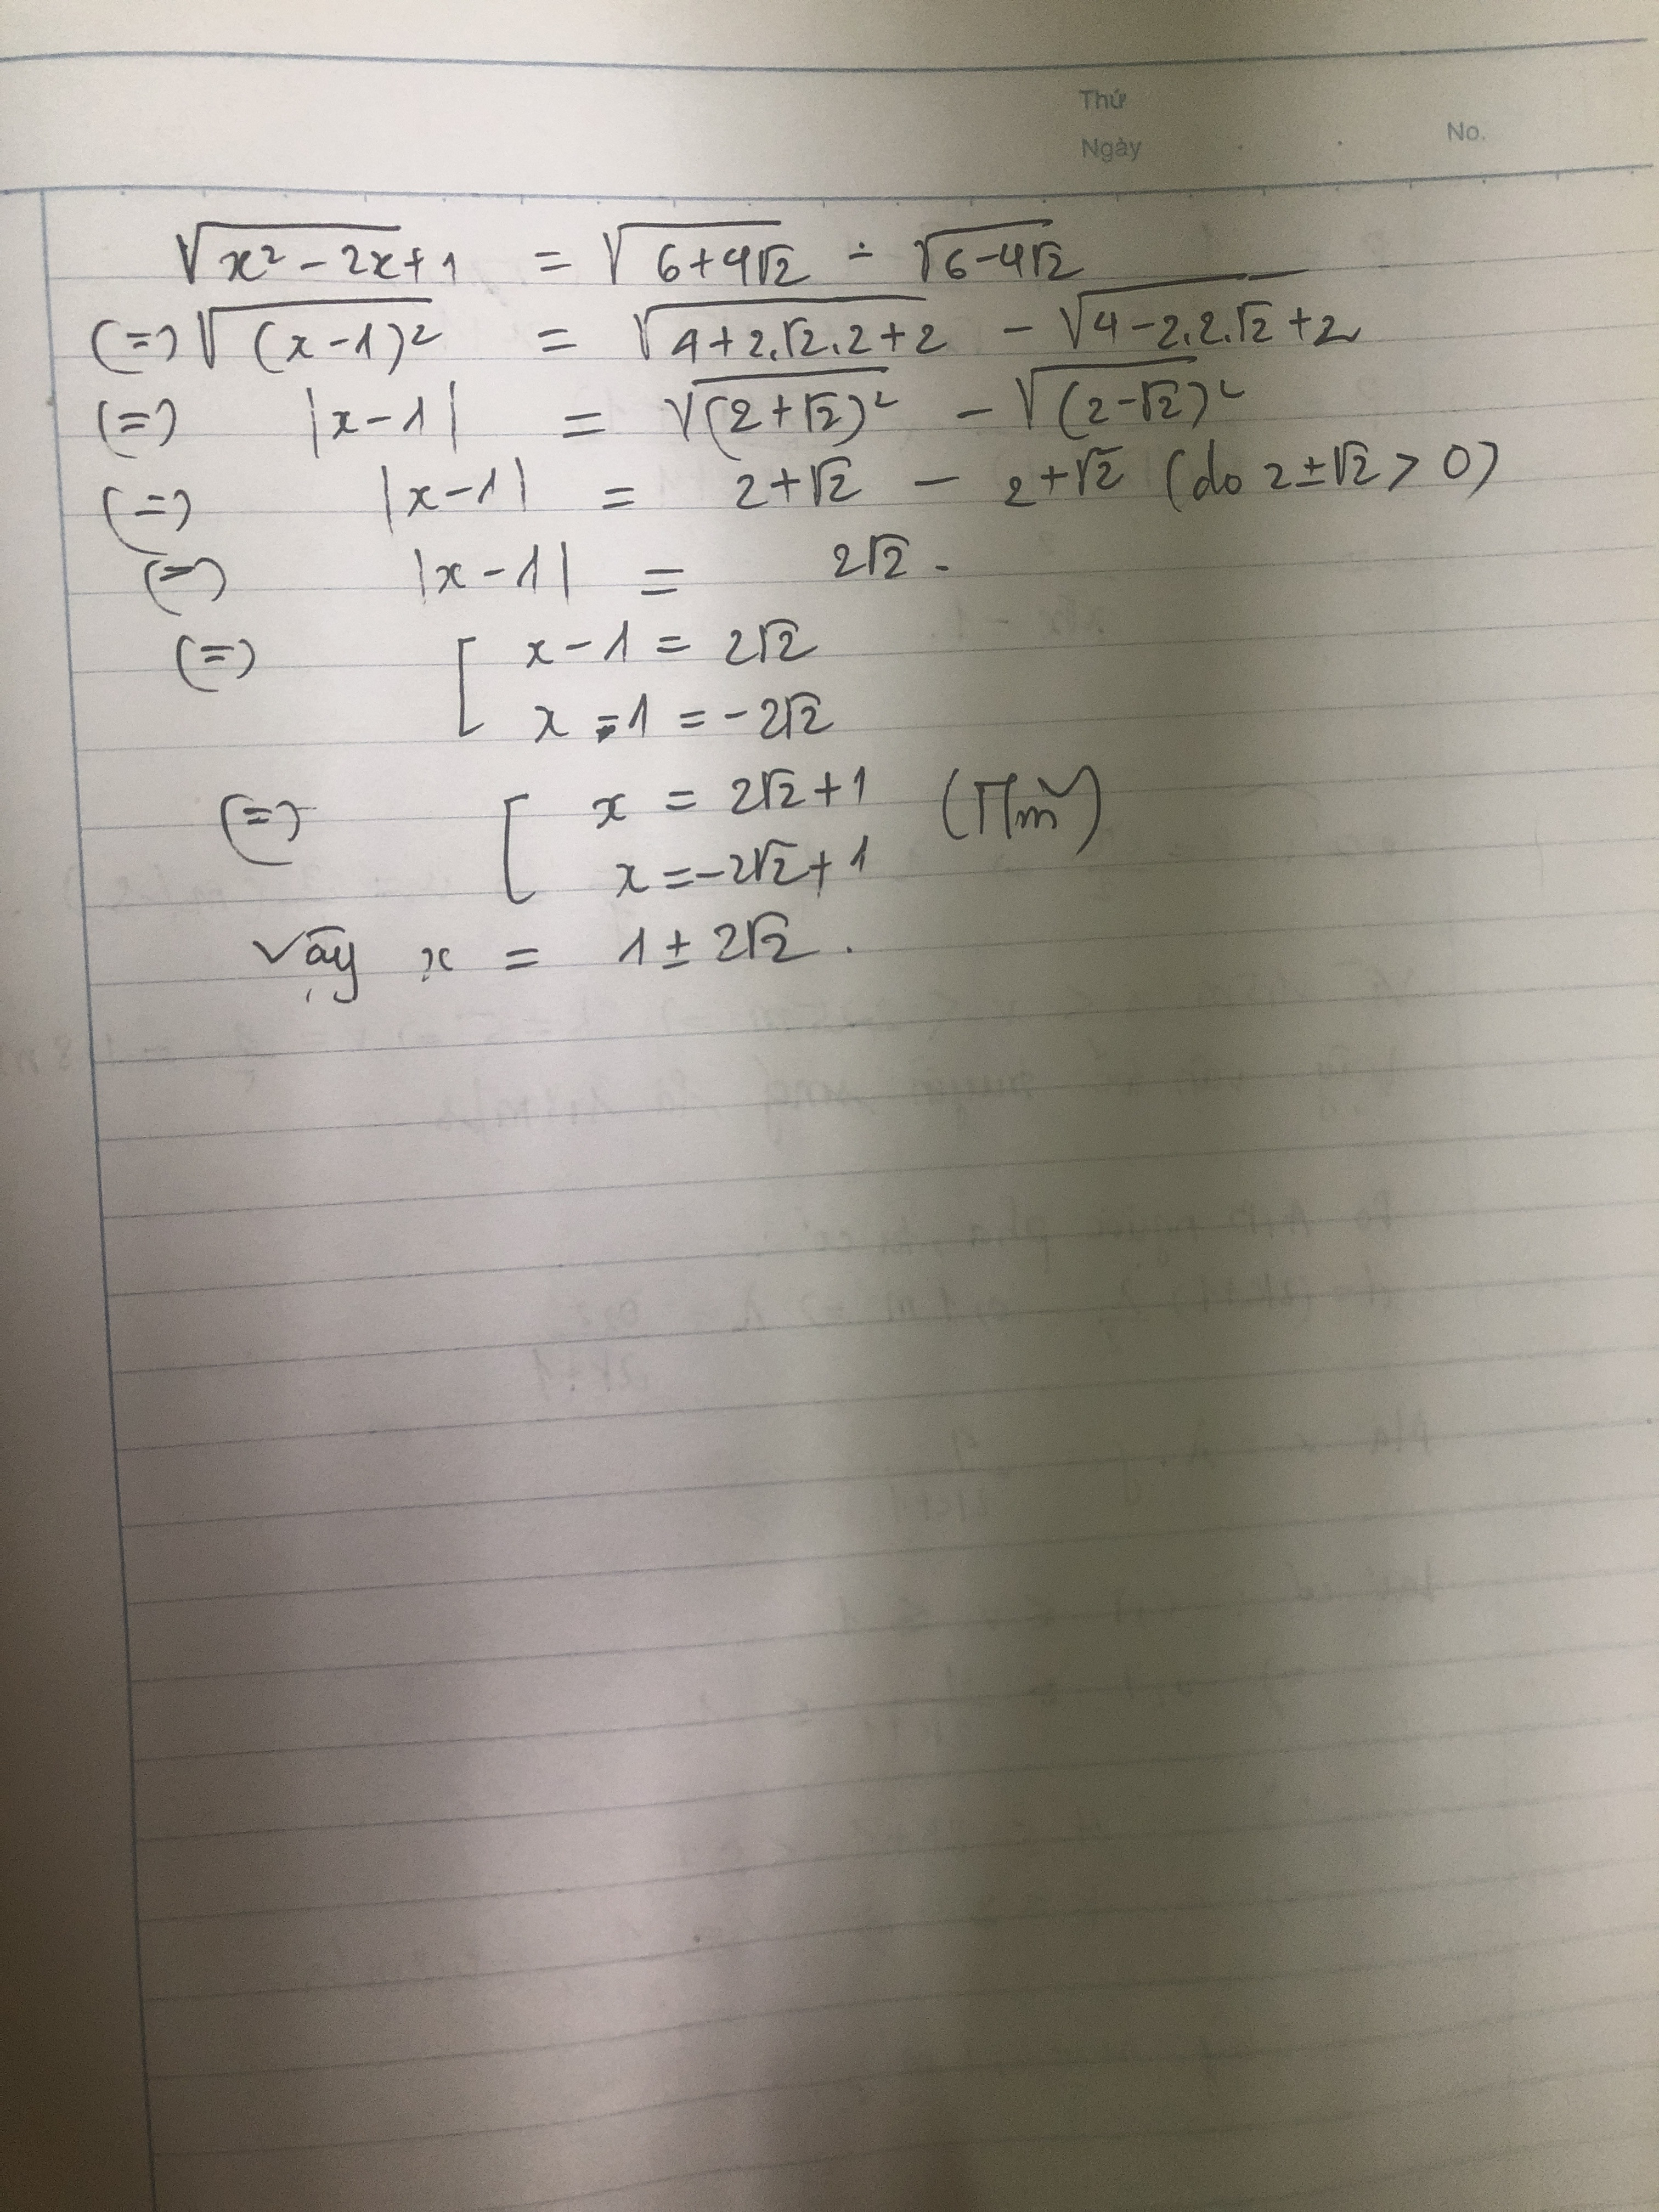 Thứ
Ngày
No.
√(x² - 2x + 1) = √(6+4√2) - √(6-4√2)
(=) √((x-1)²) = √(4+2.√2.2+2) - √(4-2.2.√2+2)
(=) |x-1| = √((2+√2)²) - √((2-√2)²)
(=) |x-1| = 2+√2 - 2+√2 (do 2±√2 > 0)
(=) |x-1| = 2√2.
(=) [ x-1 = 2√2
x-1 = -2√2
(=) [ x = 2√2+1 (Tm)
x = -2√2+1
Vậy x = 1 ± 2√2.